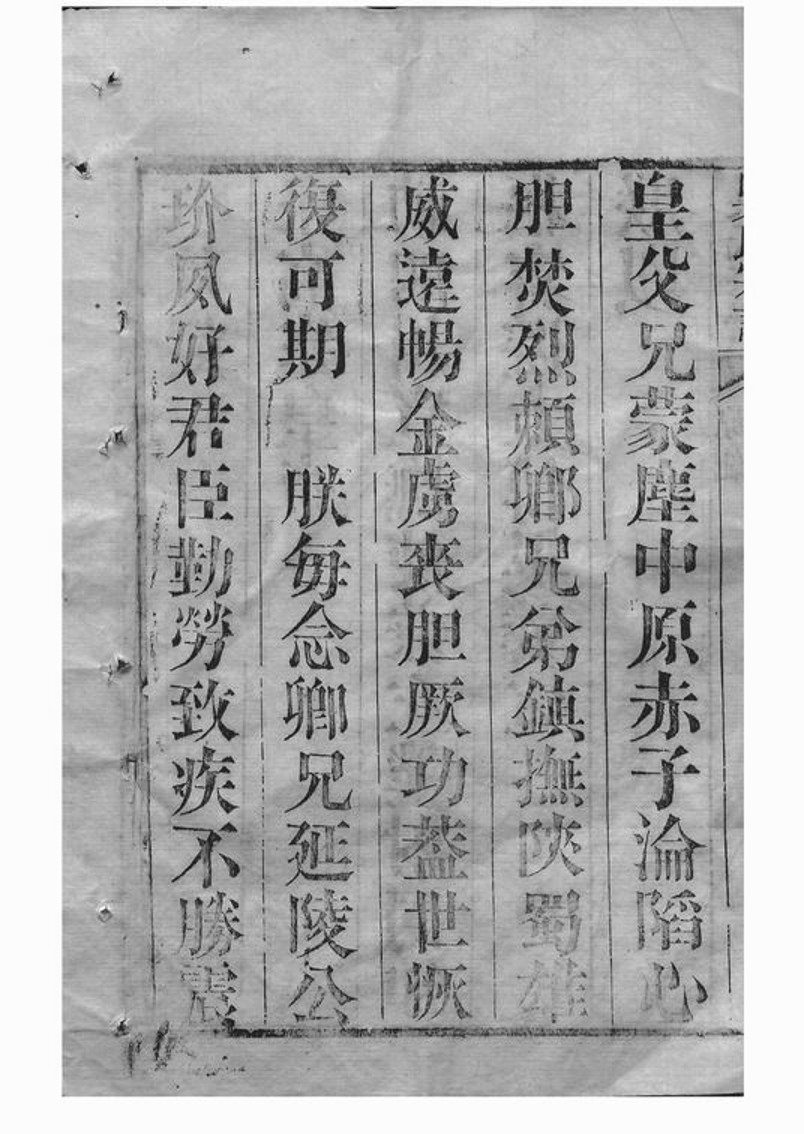 皇父兄蒙塵中原赤子淪陷心
胆焚烈頼卿兄弟鎮撫陝蜀雄
威遠暢金虜丧胆厥功葢世恢
復可期　朕每念卿兄延陵公
玠夙好君臣勤勞致疾不勝震